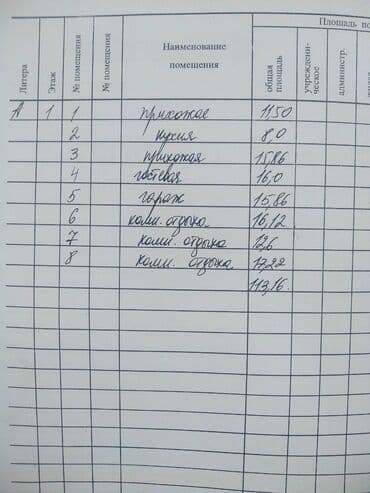 Площадь по
Литера Этаж № помещения № помещения Наименование помещения общая площадь учрежденческое администр.
А 1 1 прихожое 11,50
2 кухня 8,0
3 прихожая 15,86
4 гостевая 16,0
5 гараж 15,86
6 комн. отдыха 16,12
7 комн. отдыха 12,6
8 комн. отдыха 17,22
113,16